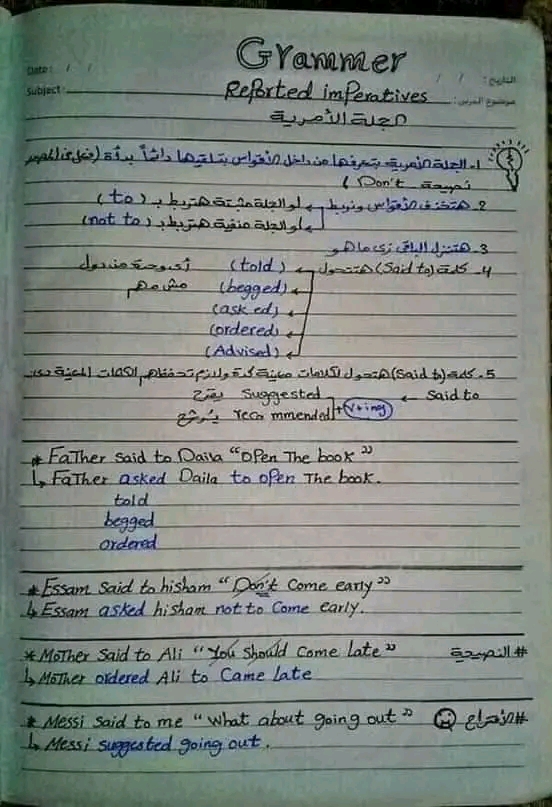 Grammer
Date: / /
التاريخ: / /
Subject:
Reported imperatives
موضوع الدرس:
الجملة الأمرية
1- الجملة الأمرية بتعرفها من داخل الأقواس بتلاقيها دائماً بدأة (فعل في المصدر
نصيحة Don't )
2- هتحذف الأقواس ونربط لو الجملة مثبتة هتربط بـ (to)
لو الجملة منفية هتربط بـ (not to)
3- هتنزل الباقي زي ما هو
4- كلمة (Said to) هتتحول (told) أي وحدة من دول
(begged) مش مهم
(asked)
(ordered)
(Advised)
5- كلمة (Said to) هتتحول لكلمات معينة كدة ولازم تحفظهم الكلمات المعينة دي:
Said to Suggested يقترح
recommended يرشح +(V+ing)
* Father said to Daila "Open The book"
Father asked Daila to open The book.
told
begged
ordered
* Essam Said to hisham "Don't Come early"
Essam asked hisham not to Come early.
* Mother Said to Ali "You Should Come late" # النصيحة
Mother ordered Ali to Came late
* Messi said to me "What about going out" #الأقتراح
Messi suggested going out.